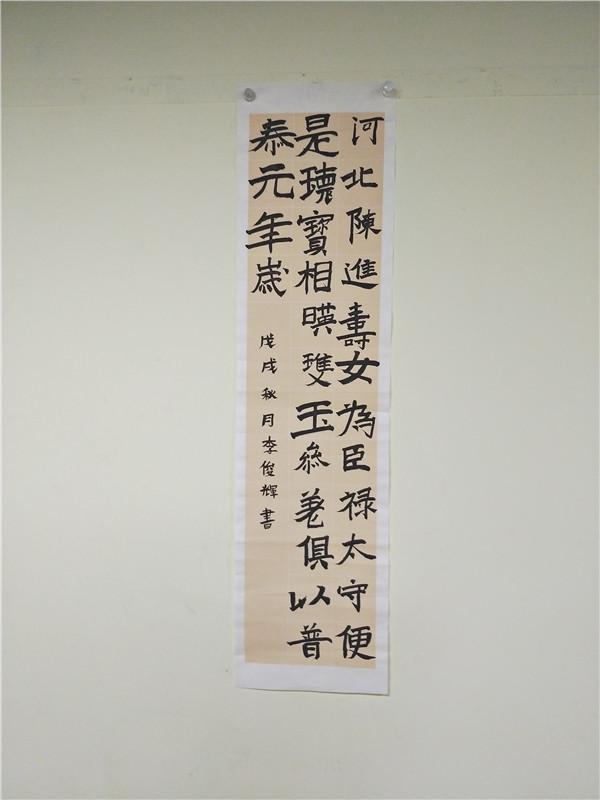 河北陳進壽女為臣禄太守便
是瓌寶相暎雙玉參差俱以普
泰元年歲
戊戌秋月李俊輝書